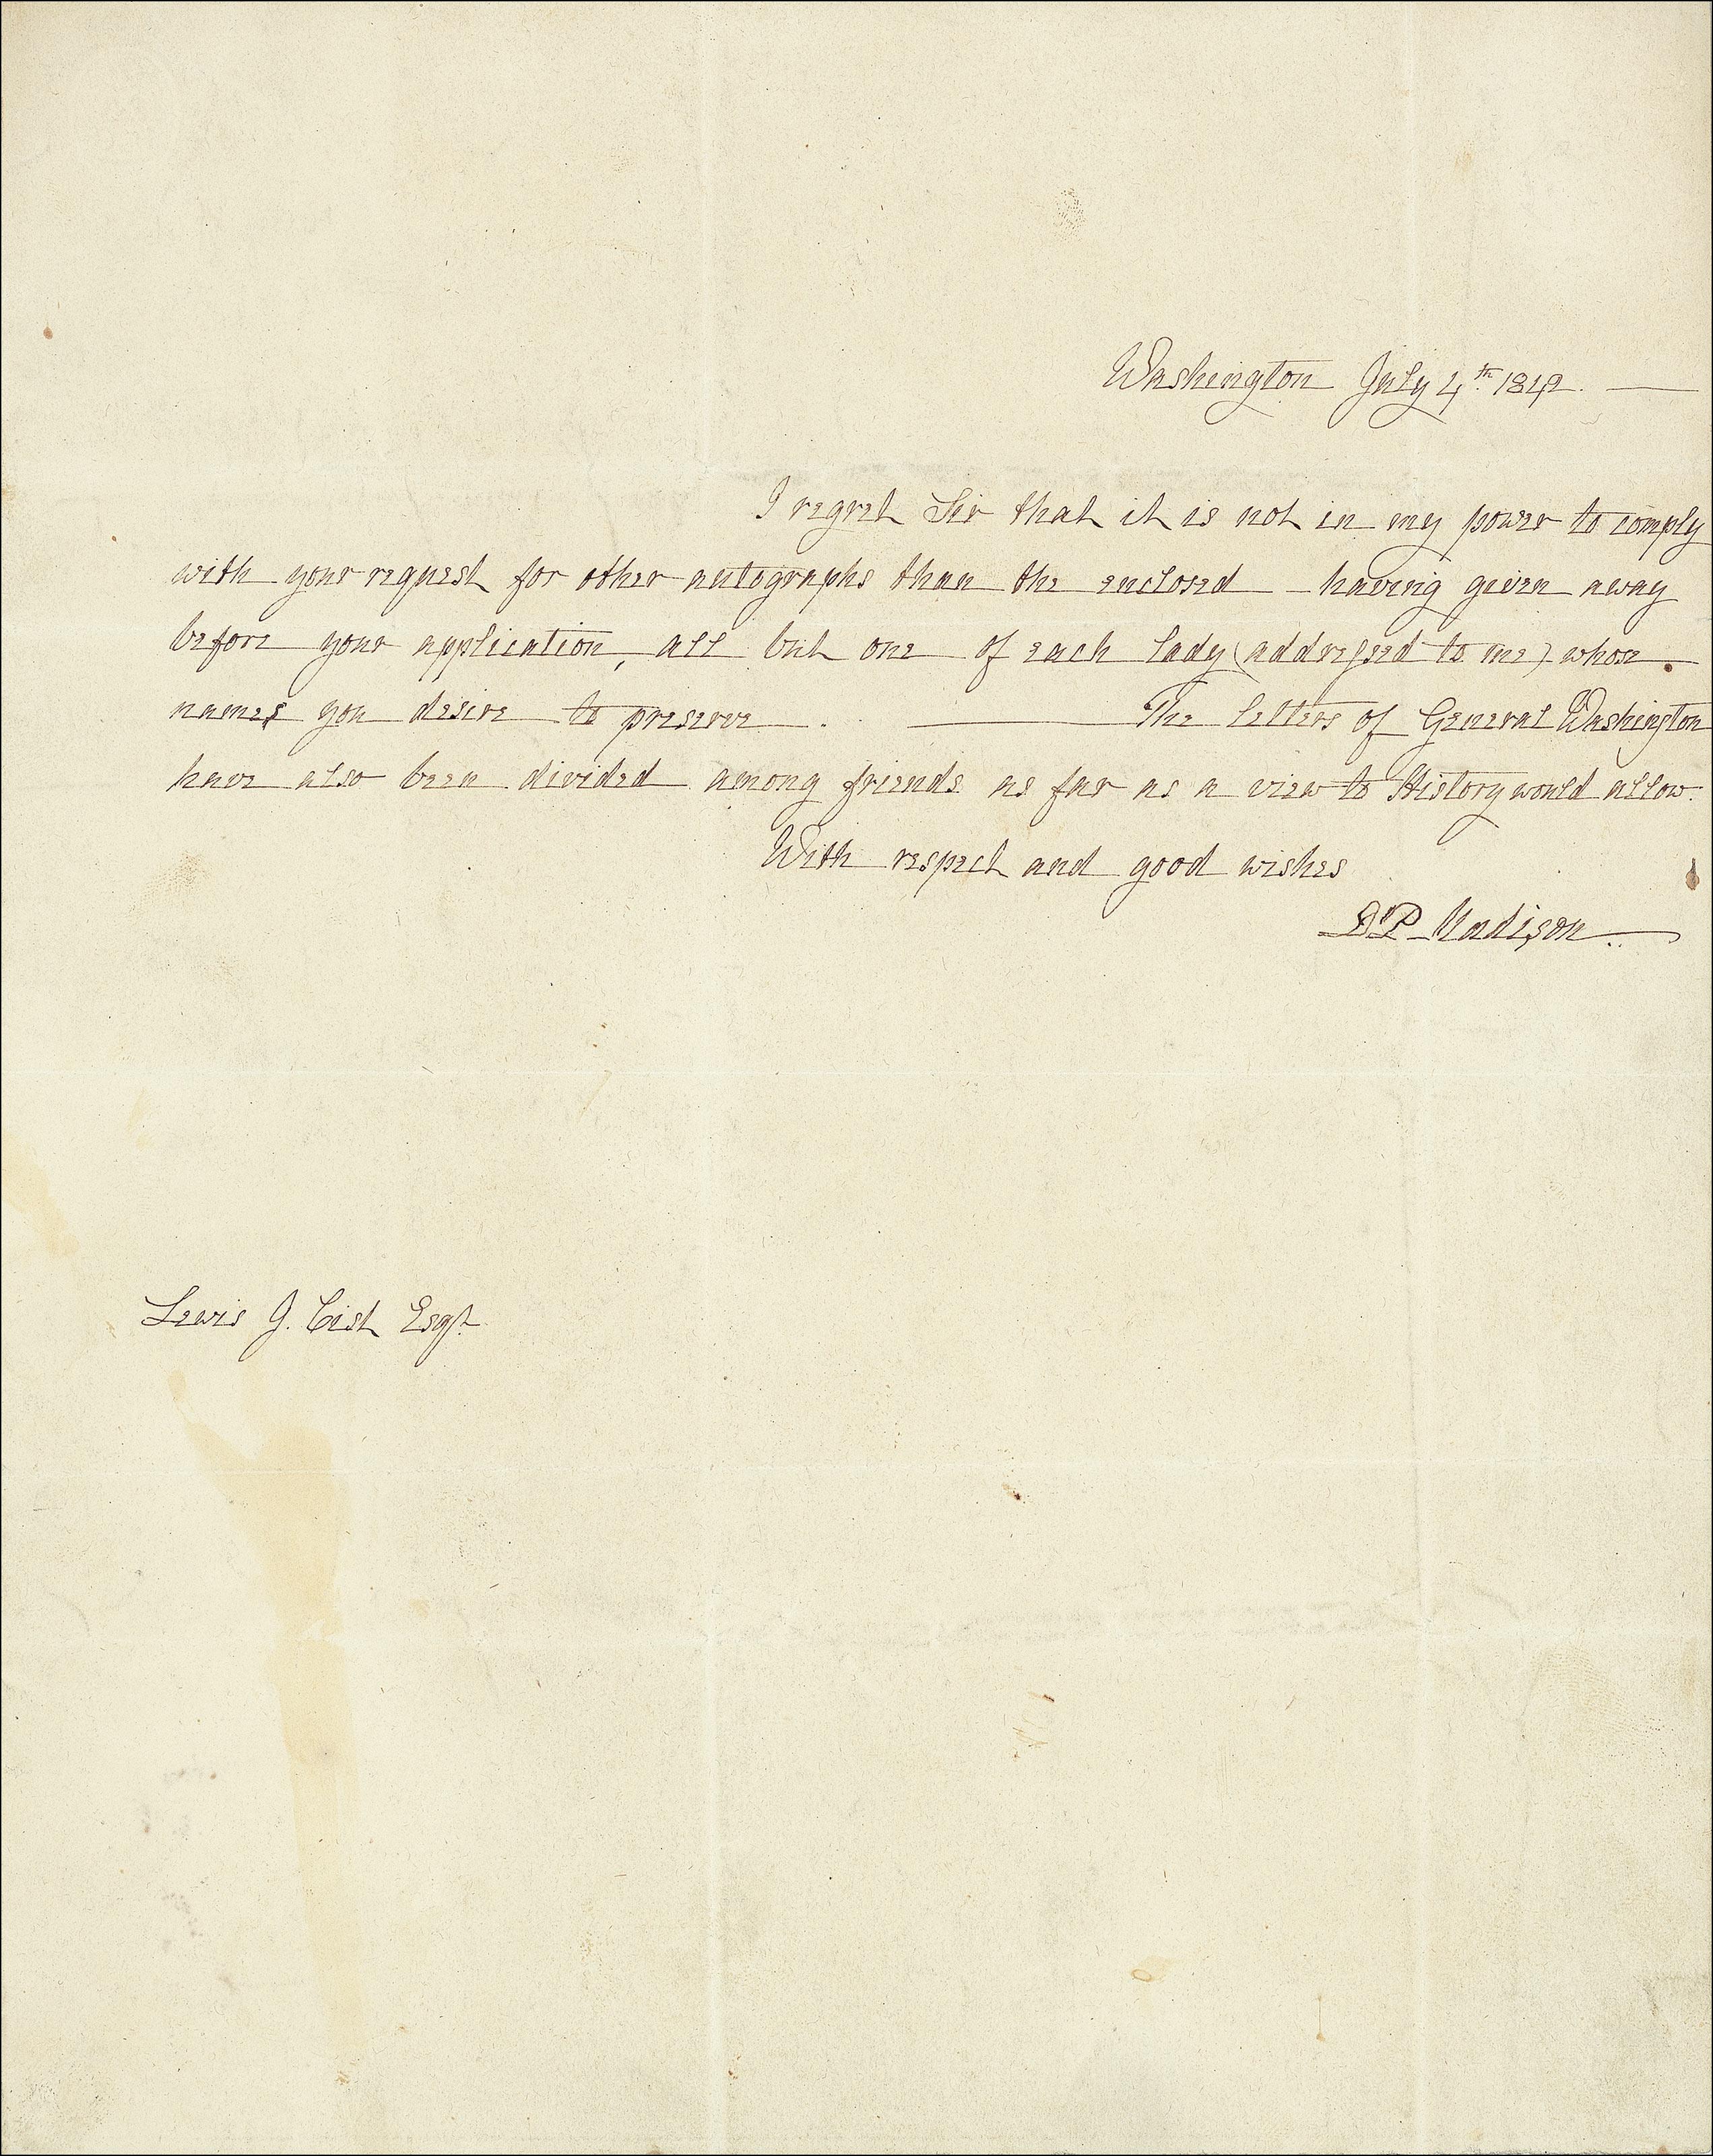 Washington July 4th 1842. —
I regret Sir that it is not in my power to comply
with your request for other autographs than the enclosed — having given away
before your application, all but one of each lady (addressed to me) whose
names you desire to preserve. — The letters of General Washington
have also been divided among friends as far as a view to History would allow.
With respect and good wishes
D P Madison
Lewis J. Cist Esqr.